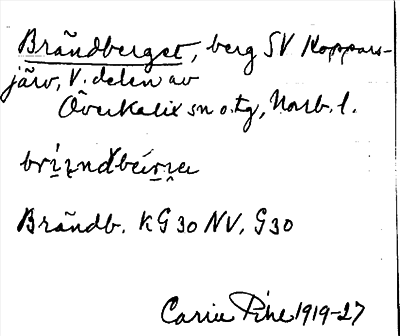 Brändberget, berg SV Koppars-
järv, V. delen av
Överkalix sn o. tg, Norb. l.
Brändb. KG 30 NV, G30
Carin Pihl 1919-27